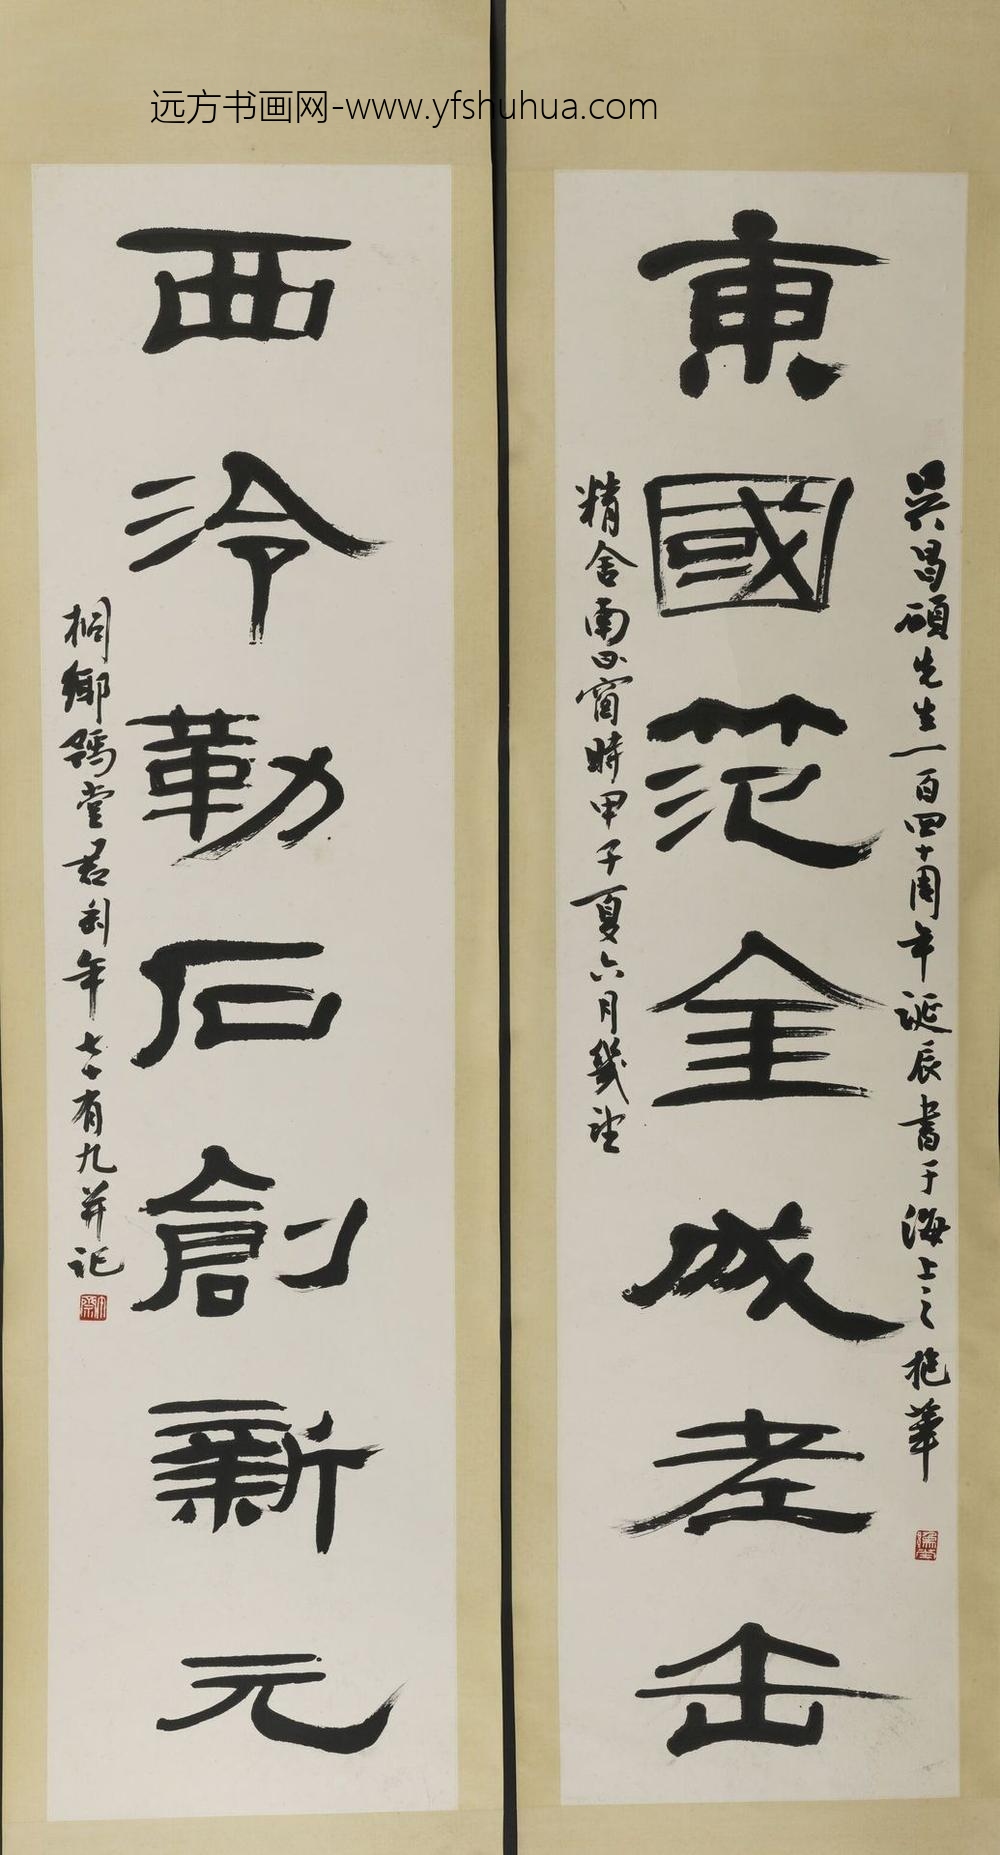 远方书画网-www.yfshuhua.com
吳昌碩先生一百四十周年誕辰書于海上之抱華
東國范金成老缶
精舍南窗時甲子夏六月幾望
西泠勒石創新元
桐鄉堂君匋年七十有九并記